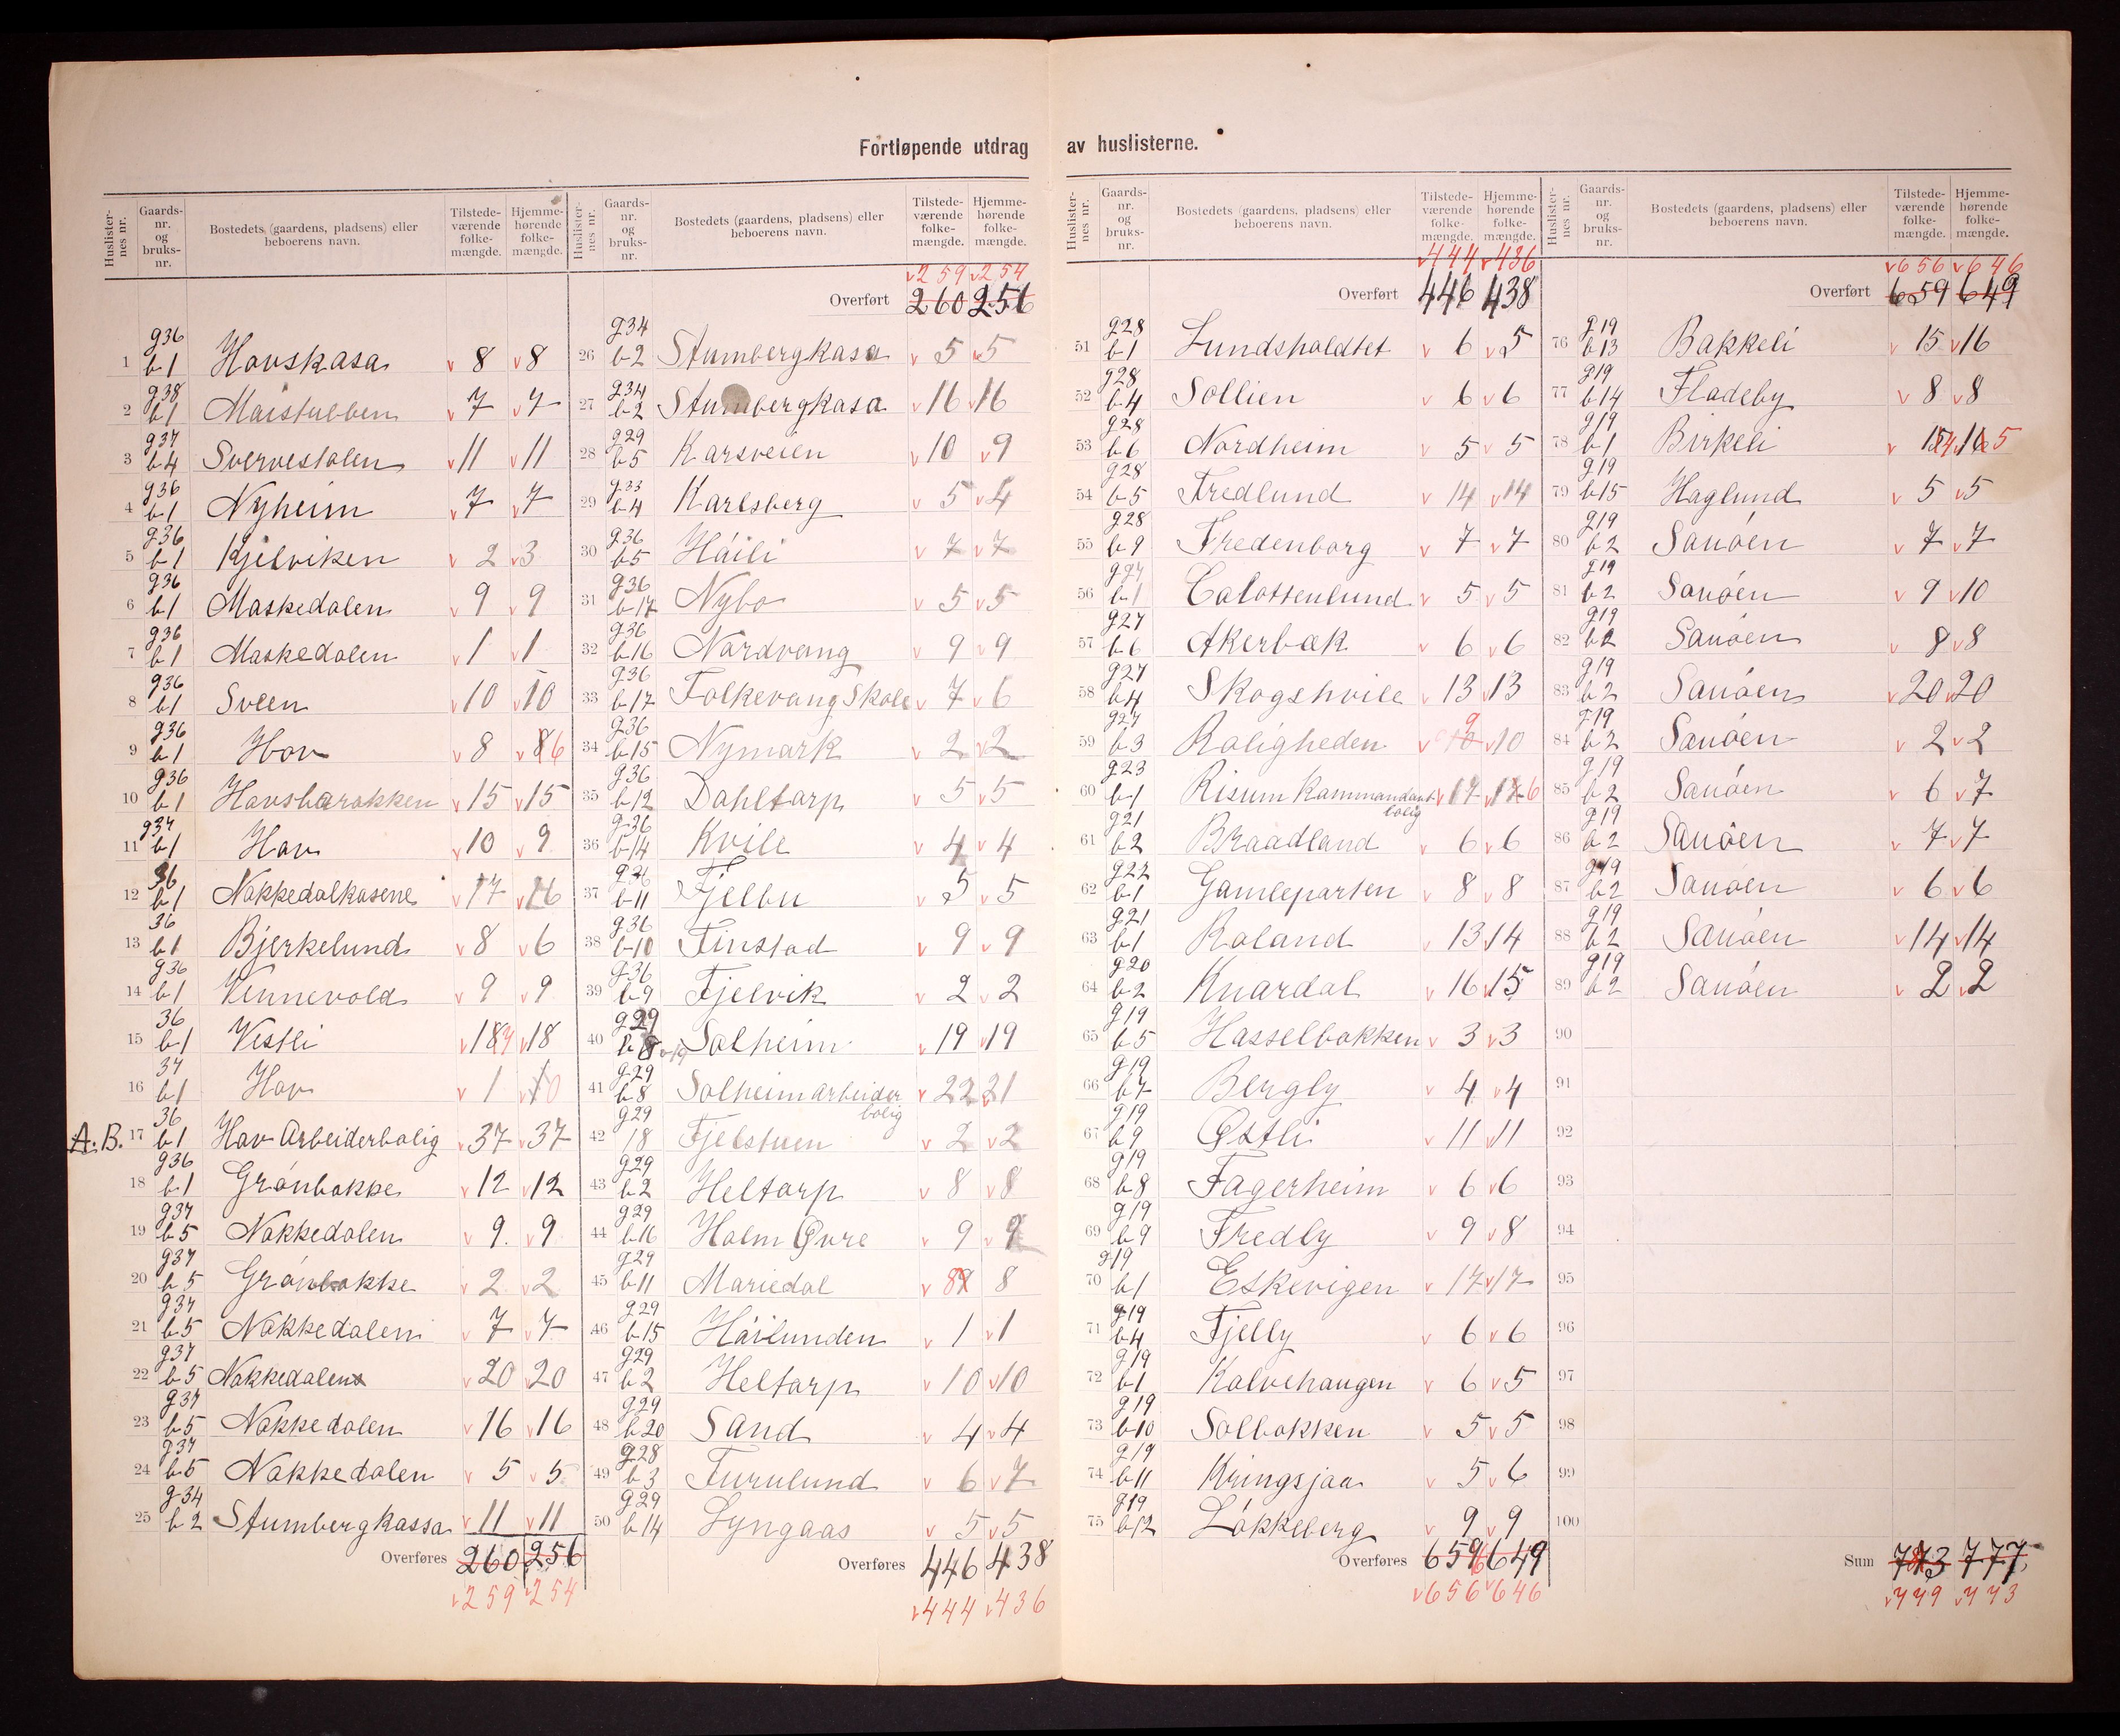 Fortløpende utdrag av huslisterne.
Huslister-nes nr. Gaards-nr. og bruks-nr. Bostedets (gaardens, pladsens) eller beboerens navn. Tilstede-værende folke-mængde. Hjemme-hørende folke-mængde.
1 g36 b1 Hovskasa v 8 v 8
2 g38 b1 Maistubben v 7 v 7
3 g37 b4 Svervestolen v 11 v 11
4 g36 b1 Nyheim v 7 v 7
5 g36 b1 Kjelviken v 2 v 3
6 g36 b1 Maskedalen v 9 v 9
7 g36 b1 Maskedalen v 1 v 1
8 g36 b1 Sveen v 10 v 10
9 g36 b1 Hov v 8 v 86
10 g36 b1 Hovsbarakken v 15 v 15
11 g37 b1 Hov v 10 v 9
12 36 b1 Nakkedalkasene v 17 v 16
13 36 b1 Bjerkelund v 8 v 6
14 g36 b1 Vennevold v 9 v 9
15 36 b1 Vestli v 18 v 18
16 37 b1 Hov v 1 v 0
A.B. 17 36 b1 Hov Arbeiderbolig v 37 v 37
18 g36 b1 Grønbakke v 12 v 12
19 g37 b5 Nakkedalen v 9. v 9
20 g37 b5 Grønbakke v 2 v 2
21 g37 b5 Nakkedalen v 7 v 7
22 g37 b5 Nakkedalen v 20 v 20
23 g37 b5 Nakkedalen v 16 v 16
24 g37 b5 Nakkedalen v 5 v 5
25 g34 b2 Stumbergkassa v 11 v 11
Overføres 260 256
v 259 v 254
Huslister-nes nr. Gaards-nr. og bruks-nr. Bostedets (gaardens, pladsens) eller beboerens navn. Tilstede-værende folke-mængde. Hjemme-hørende folke-mængde.
v 259 v 254
Overført 260 256
26 g34 b2 Stumbergkasa v 5 v 5
27 g34 b2 Stumbergkasa v 16 v 16
28 g29 b5 Karsveien v 10 v 9
29 g33 b4 Karlsberg v 5 v 4
30 g36 b5 Háili v 7 v 7
31 g36 b17 Nybo v 5 v 5
32 g36 b16 Nordvang v 9 v 9
33 g36 b17 Folkevang Skole v 7 v 6
34 g36 b15 Nymark v 2 v 2
35 g36 b12 Dahltorp v 5 v 5
36 g36 b14 Kvile v 4 v 4
37 g36 b11 Fjelbu v 5 v 5
38 g36 b10 Finstad v 9 v 9
39 g36 b9 Fjelvik v 2 v 2
40 g29 b8 Solheim v 19 v 19
41 g29 b8 Solheim arbeider bolig v 22 v 21
42 g29 18 Fjelstuen v 2 v 2
43 g29 b2 Heltorp v 8 v 8
44 g29 b16 Holm Øvre v 9 v 9
45 g29 b11 Mariedal v 8 8
46 g29 b15 Háilunden v 1 v 1
47 g29 b2 Heltorp v 10 v 10
48 g29 b20 Sand v 4 v 4
49 g28 b3 Furulund v 6 v 7
50 g29 b14 Lyngaas v 5 v 5
Overføres 446 438
v 444 v 436
Huslister-nes nr. Gaards-nr. og bruks-nr. Bostedets (gaardens, pladsens) eller beboerens navn. Tilstede-værende folke-mængde. Hjemme-hørende folke-mængde.
v 444 v 436
Overført 446 438
51 g28 b1 Lundsholdtet v 6 v 5
52 g28 b4 Sollien v 6 v 6
53 g28 b6 Nordheim v 5 v 5
54 g28 b5 Fredlund v 14 v 14
55 g28 b9 Fredenborg v 7 v 7
56 g27 b1 Calottenlund v 5 v 5
57 g27 b6 Akerbæk v 6 v 6
58 g27 b4 Skogshvile v 13 v 13
59 g27 b3 Roligheden v 10 9 v 10
60 g23 b1 Risum Kommandant bolig v 17 v 17 6
61 g21 b2 Braadland v 6 v 6
62 g22 b1 Gamleparten v 8 v 8
63 g21 b1 Roland v 13 v 14
64 g20 b2 Knardal v 16 v 15
65 g19 b5 Hasselbakken v 3 v 3
66 g19 b7 Bergly v 4 v 4
67 g19 b9 Østli v 11 v 11
68 g19 b8 Fagerheim v 6 v 6
69 g19 b9 Fredly v 9 v 8
70 g19 b1 Eskevigen v 17 v 17
71 g19 b4 Fjelly v 6 v 6
72 g19 b1 Kalvehaugen v 6 v 5
73 g19 b10 Solbakken v 5 v 5
74 g19 b11 Kringsjaa v 5 v 6
75 g19 b12 Løkkeberg v 9 v 9
Overføres 659 649
v 656 v 646
Huslister-nes nr. Gaards-nr. og bruks-nr. Bostedets (gaardens, pladsens) eller beboerens navn. Tilstede-værende folke-mængde. Hjemme-hørende folke-mængde.
v 656 v 646
Overført 659 649
76 g19 b13 Bakkeli v 15 v 16
77 g19 b14 Fladeby v 8 v 8
78 g19 b1 Birkeli v 15 14 v 16 5
79 g19 b15 Haglund v 5 v 5
80 g19 b2 Sauøen v 7 v 7
81 g19 b2 Sauøen v 9 v 10
82 g19 b2 Sauøen v 8 v 8
83 g19 b2 Sauøen v 20 v 20
84 g19 b2 Sauøen v 2 v 2
85 g19 b2 Sauøen v 6 v 7
86 g19 b2 Sauøen v 7 v 7
87 g19 b2 Sauøen v 6 v 6
88 g19 b2 Sauøen v 14 v 14
89 g19 b2 Sauøen v 2 v 2
90
91
92
93
94
95
96
97
98
99
100
Sum 777
v 779 v 773